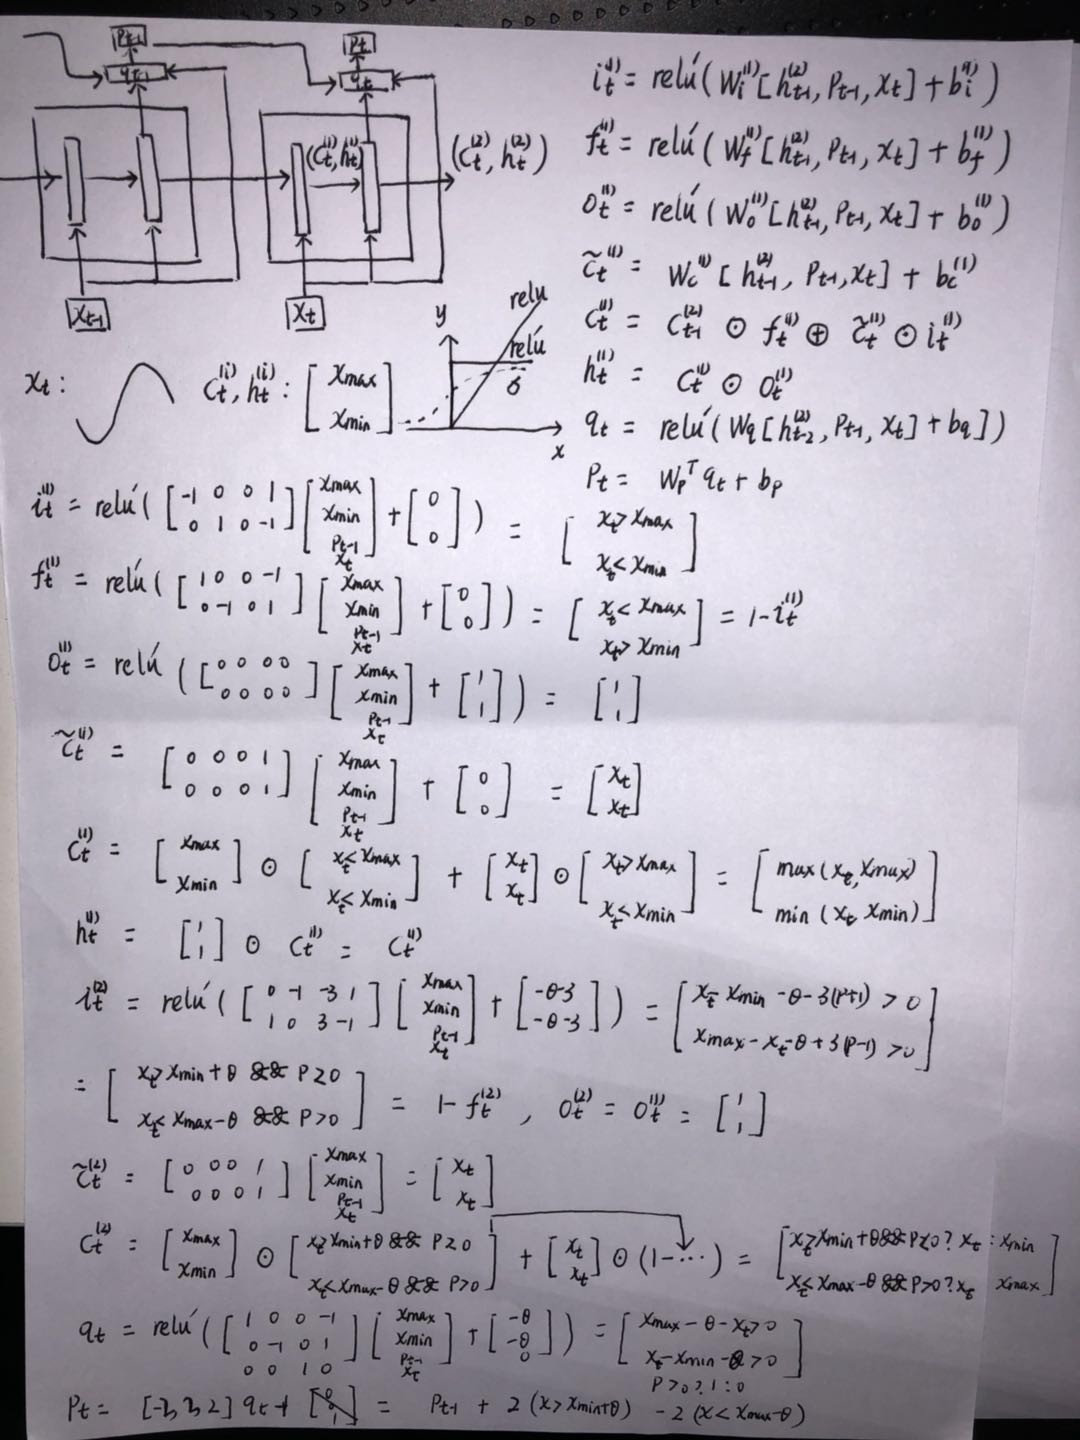 P_{t-1}
P_t
q_{t-1}
q_t
(C_t^{(1)}, h_t^{(1)})
(C_t^{(2)}, h_t^{(2)})
X_{t-1}
X_t
y
relu
relú
σ
x
X_t :
C_t^{(i)}, h_t^{(i)} : [X_max; X_min]
i_t^{(1)} = relú(W_i^{(1)}[h_{t-1}^{(2)}, P_{t-1}, X_t] + b_i^{(1)})
f_t^{(1)} = relú(W_f^{(1)}[h_{t-1}^{(2)}, P_{t-1}, X_t] + b_f^{(1)})
O_t^{(1)} = relú(W_o^{(1)}[h_{t-1}^{(2)}, P_{t-1}, X_t] + b_o^{(1)})
C̃_t^{(1)} = W_c^{(1)}[h_{t-1}^{(2)}, P_{t-1}, X_t] + b_c^{(1)}
C_t^{(1)} = C_{t-1}^{(2)} ⊙ f_t^{(1)} ⊕ C̃_t^{(1)} ⊙ i_t^{(1)}
h_t^{(1)} = C_t^{(1)} ⊙ O_t^{(1)}
q_t = relú(W_q[h_{t-2}^{(2)}, P_{t-1}, X_t] + b_q])
P_t = W_p^T q_t + b_p
i_t^{(1)} = relú([-1 0 0 1; 0 1 0 -1][X_max; X_min; P_{t-1}; X_t] + [0; 0]) = [X_t > X_max; X_t < X_min]
f_t^{(1)} = relú([1 0 0 -1; 0 -1 0 1][X_max; X_min; P_{t-1}; X_t] + [0; 0]) = [X_t < X_max; X_t > X_min] = 1 - i_t^{(1)}
O_t^{(1)} = relú([0 0 0 0; 0 0 0 0][X_max; X_min; P_{t-1}; X_t] + [1; 1]) = [1; 1]
C̃_t^{(1)} = [0 0 0 1; 0 0 0 1][X_max; X_min; P_{t-1}; X_t] + [0; 0] = [X_t; X_t]
C_t^{(1)} = [X_max; X_min] ⊙ [X_t < X_max; X_t < X_min] + [X_t; X_t] ⊙ [X_t > X_max; X_t < X_min] = [max(X_t, X_max); min(X_t, X_min)]
h_t^{(1)} = [1; 1] ⊙ C_t^{(1)} = C_t^{(1)}
i_t^{(2)} = relú([0 -1 -3 1; 1 0 3 -1][X_max; X_min; P_{t-1}; X_t] + [-θ-3; -θ-3]) = [X_t - X_min - θ - 3(P+1) > 0; X_max - X_t - θ + 3(P-1) > 0]
= [X_t > X_min + θ && P ≥ 0; X_t < X_max - θ && P > 0] = 1 - f_t^{(2)}, O_t^{(2)} = O_t^{(1)} = [1; 1]
C̃_t^{(2)} = [0 0 0 1; 0 0 0 1][X_max; X_min; P_{t-1}; X_t] = [X_t; X_t]
C_t^{(2)} = [X_max; X_min] ⊙ [X_t > X_min + θ && P ≥ 0; X_t < X_max - θ && P > 0] + [X_t; X_t] ⊙ (1 - ⋯) = [X_t > X_min + θ && P < 0 ? X_t : X_min; X_t < X_max - θ && P > 0 ? X_t X_max]
q_t = relú([1 0 0 -1; 0 -1 0 1; 0 0 1 0][X_max; X_min; P_{t-1}; X_t] + [-θ; -θ; 0]) = [X_max - θ - X_t > 0; X_t - X_min - θ > 0; P > 0 ? 1 : 0]
q_t + = P_{t-1} + 2(X > X_min + θ) - 2(X < X_max - θ)